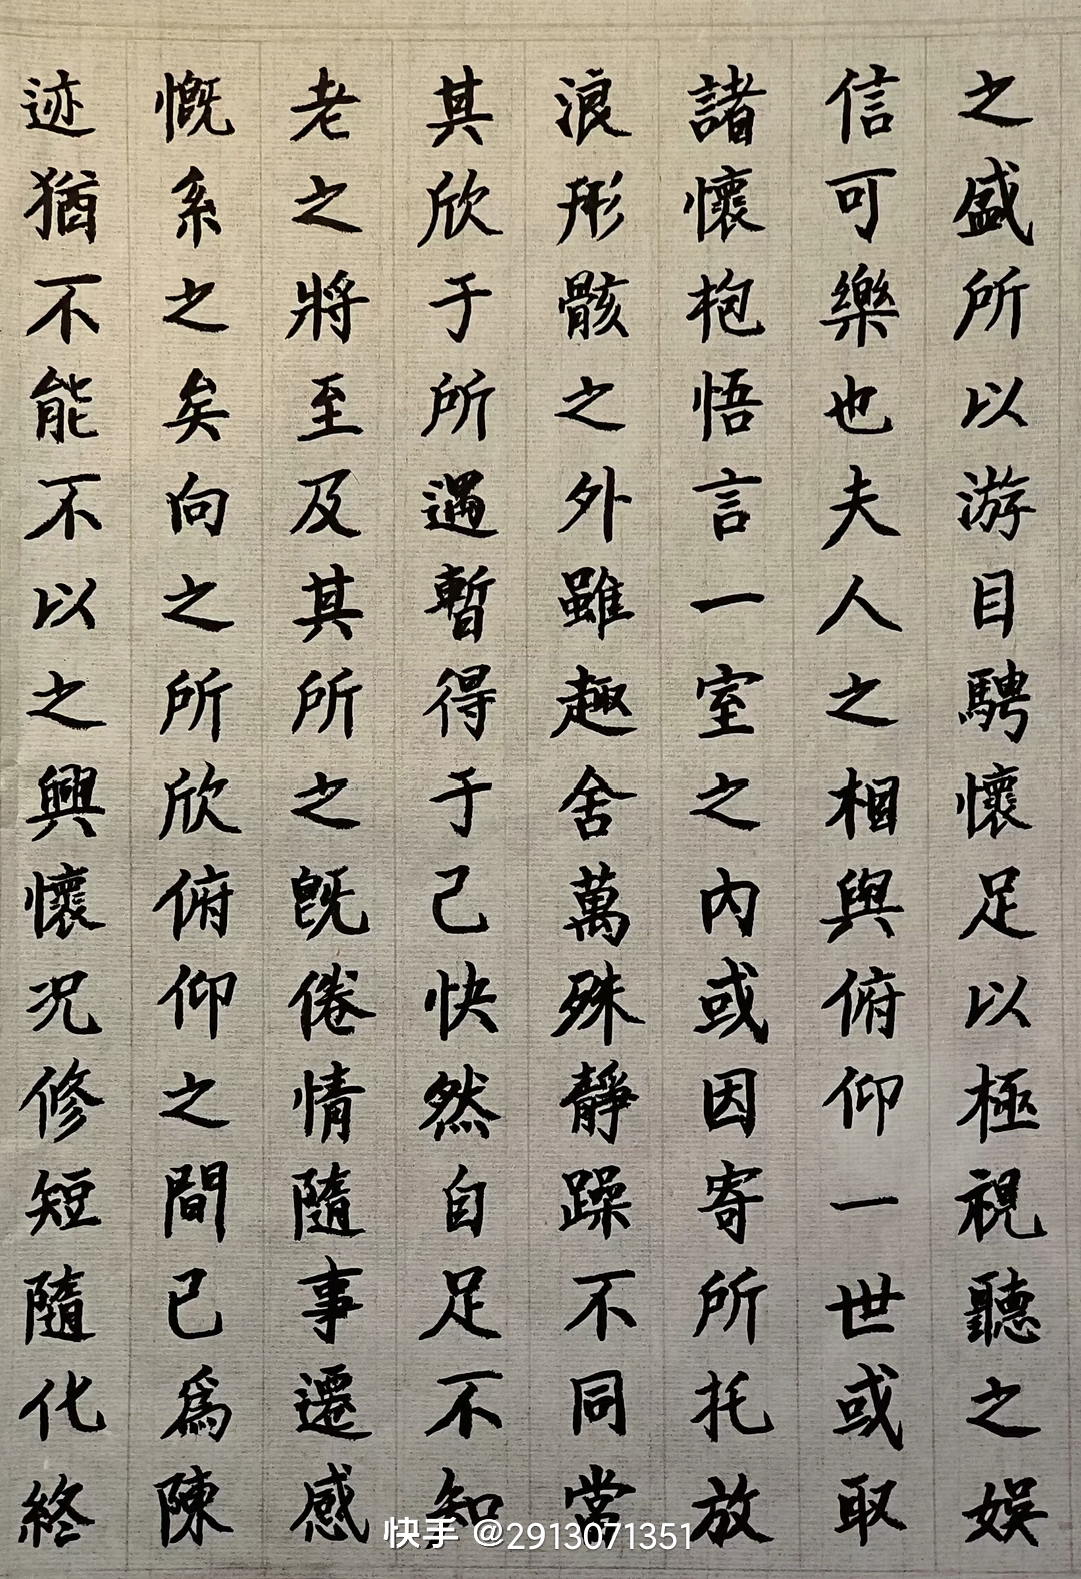 之盛所以游目騁懷足以極視聽之娛
信可樂也夫人之相與俯仰一世或取
諸懷抱悟言一室之內或因寄所托放
浪形骸之外雖趣舍萬殊靜躁不同當
其欣于所遇暫得于己快然自足不知
老之將至及其所之既倦情隨事遷感
慨系之矣向之所欣俯仰之間已為陳
迹猶不能不以之興懷況修短隨化終
快手 @2913071351